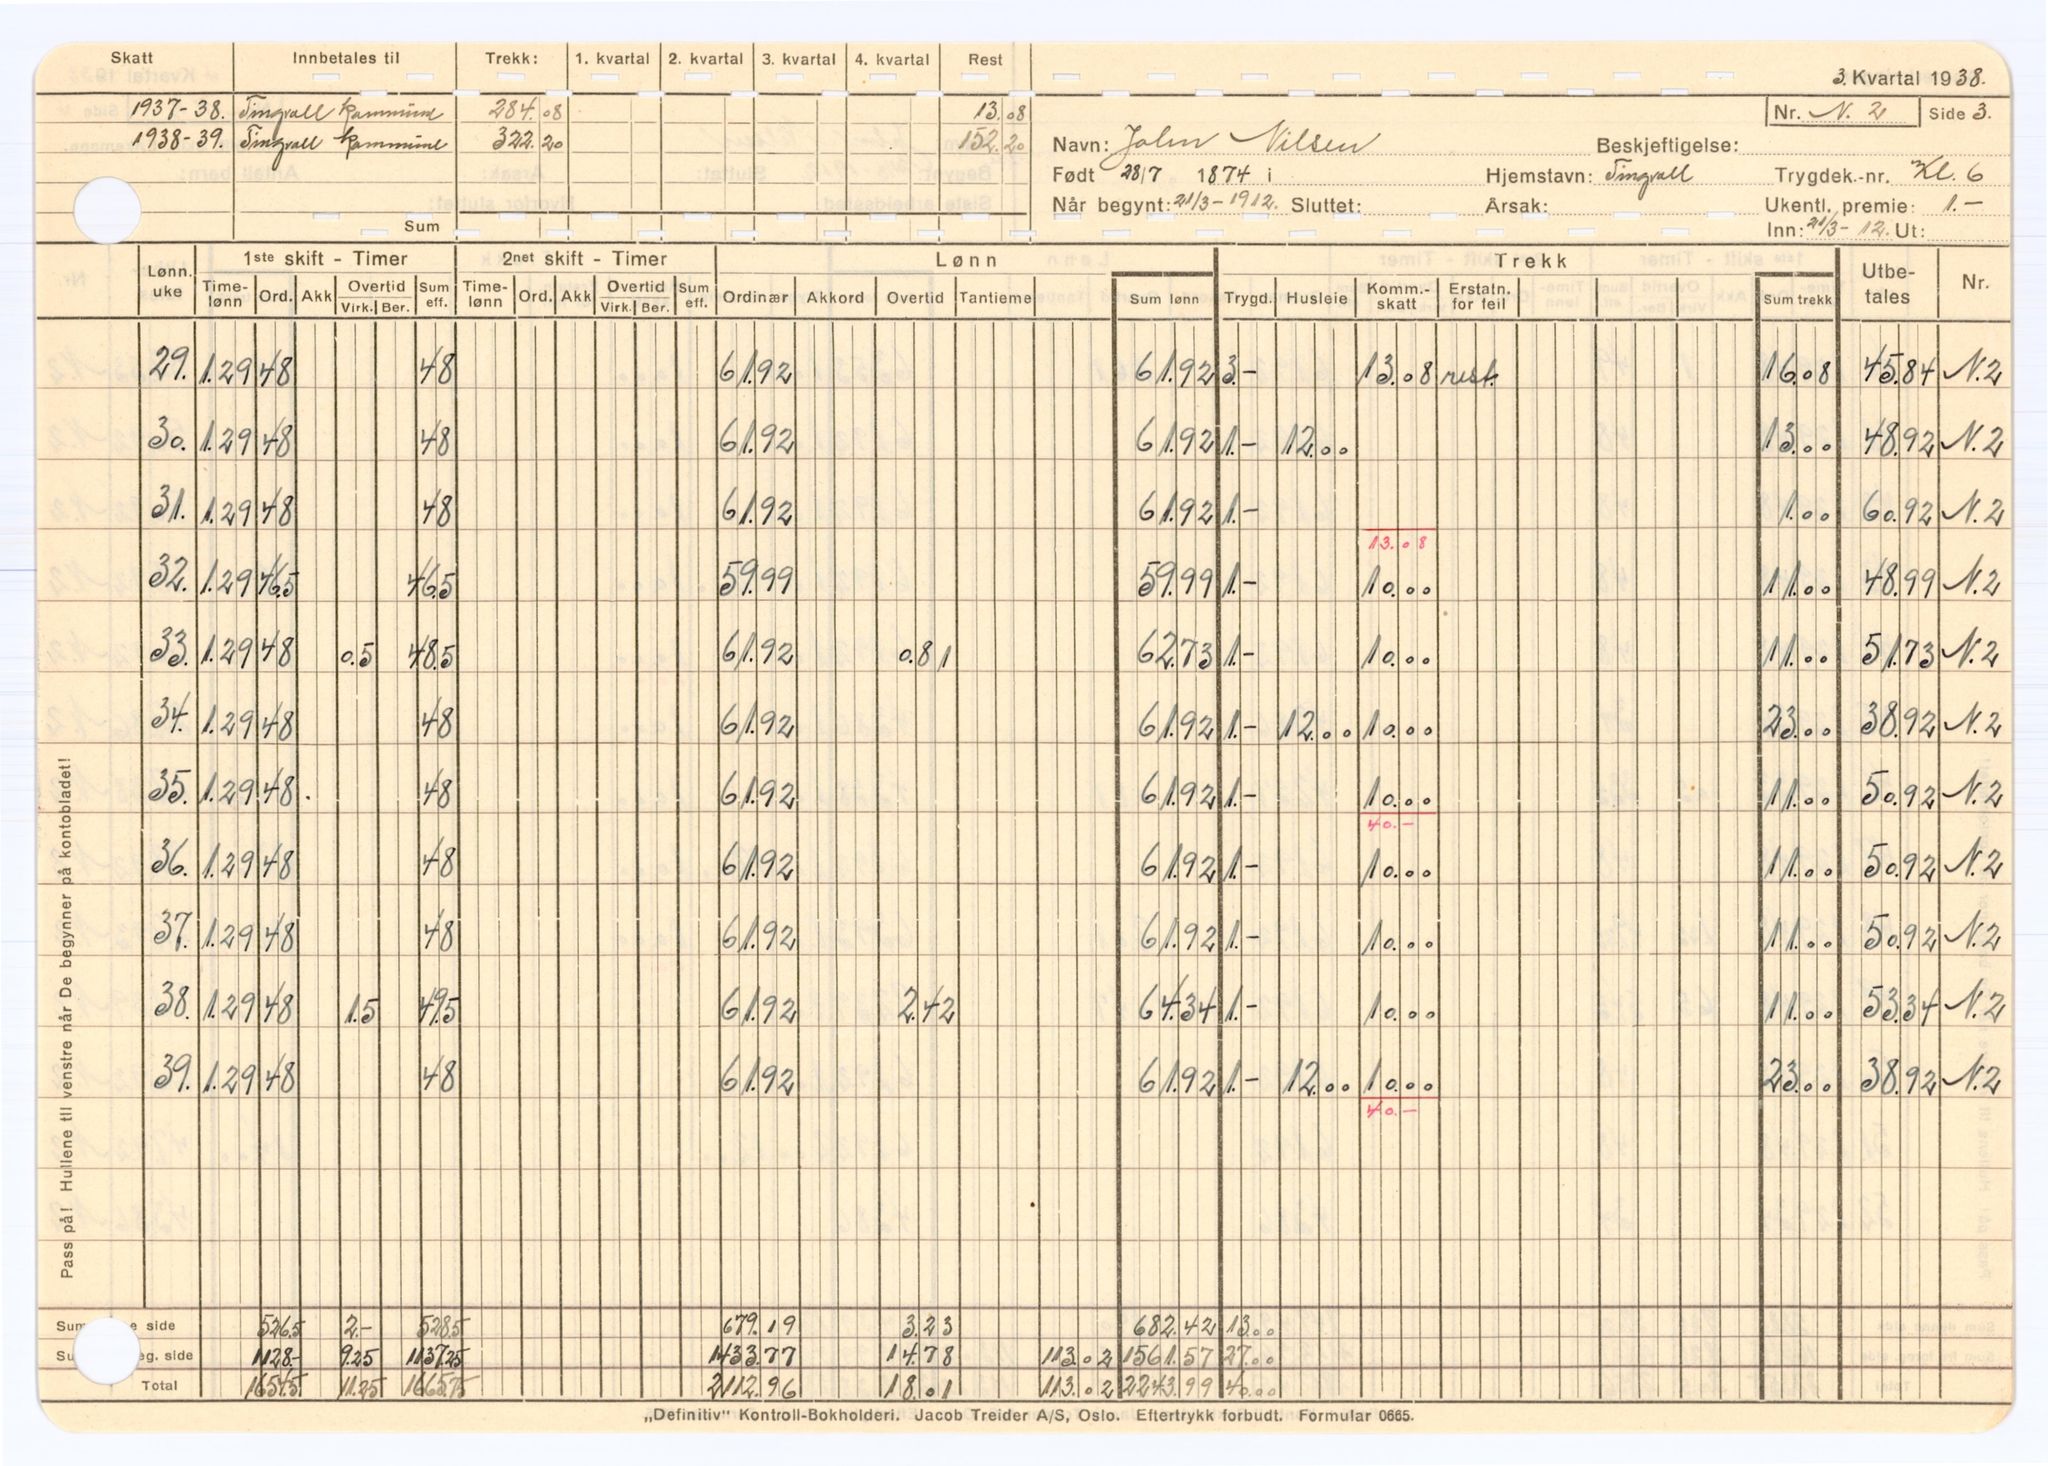 Skatt Innbetales til Trekk: 1. kvartal 2. kvartal 3. kvartal 4. kvartal Rest
3. Kvartal 1938.
1937-38. Tingvoll kommune 284.08 13.08
Nr. N. 2 Side 3.
1938-39. Tingvoll kommune 322.20 152.20
Navn: John Nilsen Beskjeftigelse:
Født 28/7 1874 i Hjemstavn: Tingvoll Trygdek.-nr. Kl. 6
Når begynt: 21/3-1912. Sluttet: Årsak: Ukentl. premie: 1.-
Sum
Inn: 21/3-12. Ut:
Lønn. uke 1ste skift - Timer 2net skift - Timer Lønn Trekk Utbe-tales Nr.
Time-lønn Ord. Akk Overtid Virk. Ber. Sum eff. Time-lønn Ord. Akk Overtid Virk. Ber. Sum eff. Ordinær Akkord Overtid Tantieme Sum lønn Trygd. Husleie Komm.-skatt Erstatn. for feil Sum trekk
29. 1.29 48 48 61.92 61.92 3.- 13.08 rest. 16.08 45.84 N.2
30. 1.29 48 48 61.92 61.92 1.- 12.00 13.00 48.92 N.2
31. 1.29 48 48 61.92 61.92 1.- 1.00 60.92 N.2
13.08
32. 1.29 46.5 46.5 59.99 59.99 1.- 10.00 11.00 48.99 N.2
33. 1.29 48 0.5 48.5 61.92 0.81 62.73 1.- 10.00 11.00 51.73 N.2
34. 1.29 48 48 61.92 61.92 1.- 12.00 10.00 23.00 38.92 N.2
35. 1.29 48 48 61.92 61.92 1.- 10.00 11.00 50.92 N.2
40.-
36. 1.29 48 48 61.92 61.92 1.- 10.00 11.00 50.92 N.2
37. 1.29 48 48 61.92 61.92 1.- 10.00 11.00 50.92 N.2
38. 1.29 48 1.5 49.5 61.92 2.42 64.34 1.- 10.00 11.00 53.34 N.2
39. 1.29 48 48 61.92 61.92 1.- 12.00 10.00 23.00 38.92 N.2
40.-
side 526.5 2.- 528.5 679.19 3.23 682.42 13.00
eg. side 1128.- 9.25 1137.25 1433.77 14.78 113.02 1561.57 27.00
Total 1654.5 11.25 1665.75 2112.96 18.01 113.02 2243.99 40.00
„Definitiv" Kontroll-Bokholderi. Jacob Treider A/S, Oslo. Eftertrykk forbudt. Formular 0665.
Pass på! Hullene til venstre når De begynner på kontobladet!